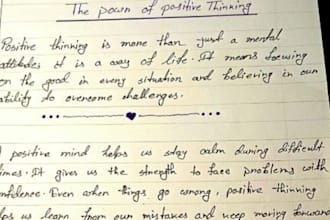 The powen of positive Thinking
Positive thinking is mone than just a mental
attitudes it is a way of life. It means focusing
on the good in eveny situation and believing in oun
ability to overcome challenges.
A positive mind helps us stay calm during difficult
times. It gives us the strength to face problems with
confidence. Even when things go wrong, positive thinking
helps us learn from oun mistakes and keep moving forward